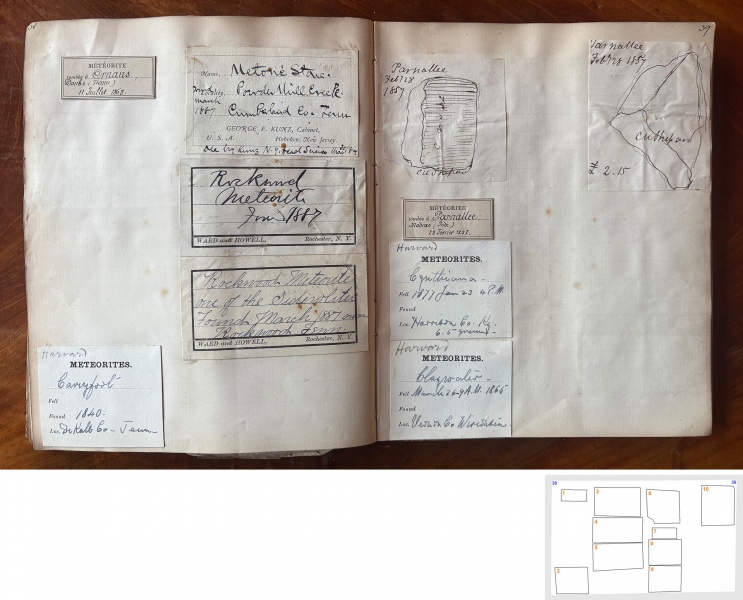 MÉTÉORITE
tombée à Ornans,
Doubs (France)
11 Juillet 1868.
Harvard
METEORITES.
Caneyfork
Fell
Found 1840-
Loc. DeKalb Co- Tenn-
Name,
Powder Mill Creek.
March
1887
Cumberland Co- Tenn
GEORGE F. KUNZ, Cabinet,
U. S. A. Hoboken, New Jersey
Rockwood
Meteorite
Tenn 1887
WARD and HOWELL, Rochester, N. Y.
Rockwood Meteorite
one of the Siderolites
Found March 1887 near
Rockwood Tenn
WARD and HOWELL, Rochester, N. Y.
39
Parnallee
Feb 28
1857
cut & pard
MÉTÉORITE
tombée à Parnallee,
Madras (Inde)
28 Février 1857.
Harvard
METEORITES.
Cynthiana-
Fell 1877 Jan 23 4 P.M.
Found
Loc. Harrison Co- Ky.
6.5 grams-
Harvard
METEORITES.
Claywater-
Fell March 26-9 A.M. 1865
Found
Loc. Vernon Co Wisconsin
Parnallee
Feb 28 1857
cut & pard
2.15
38
39
1
2
3
4
5
6
7
8
9
10